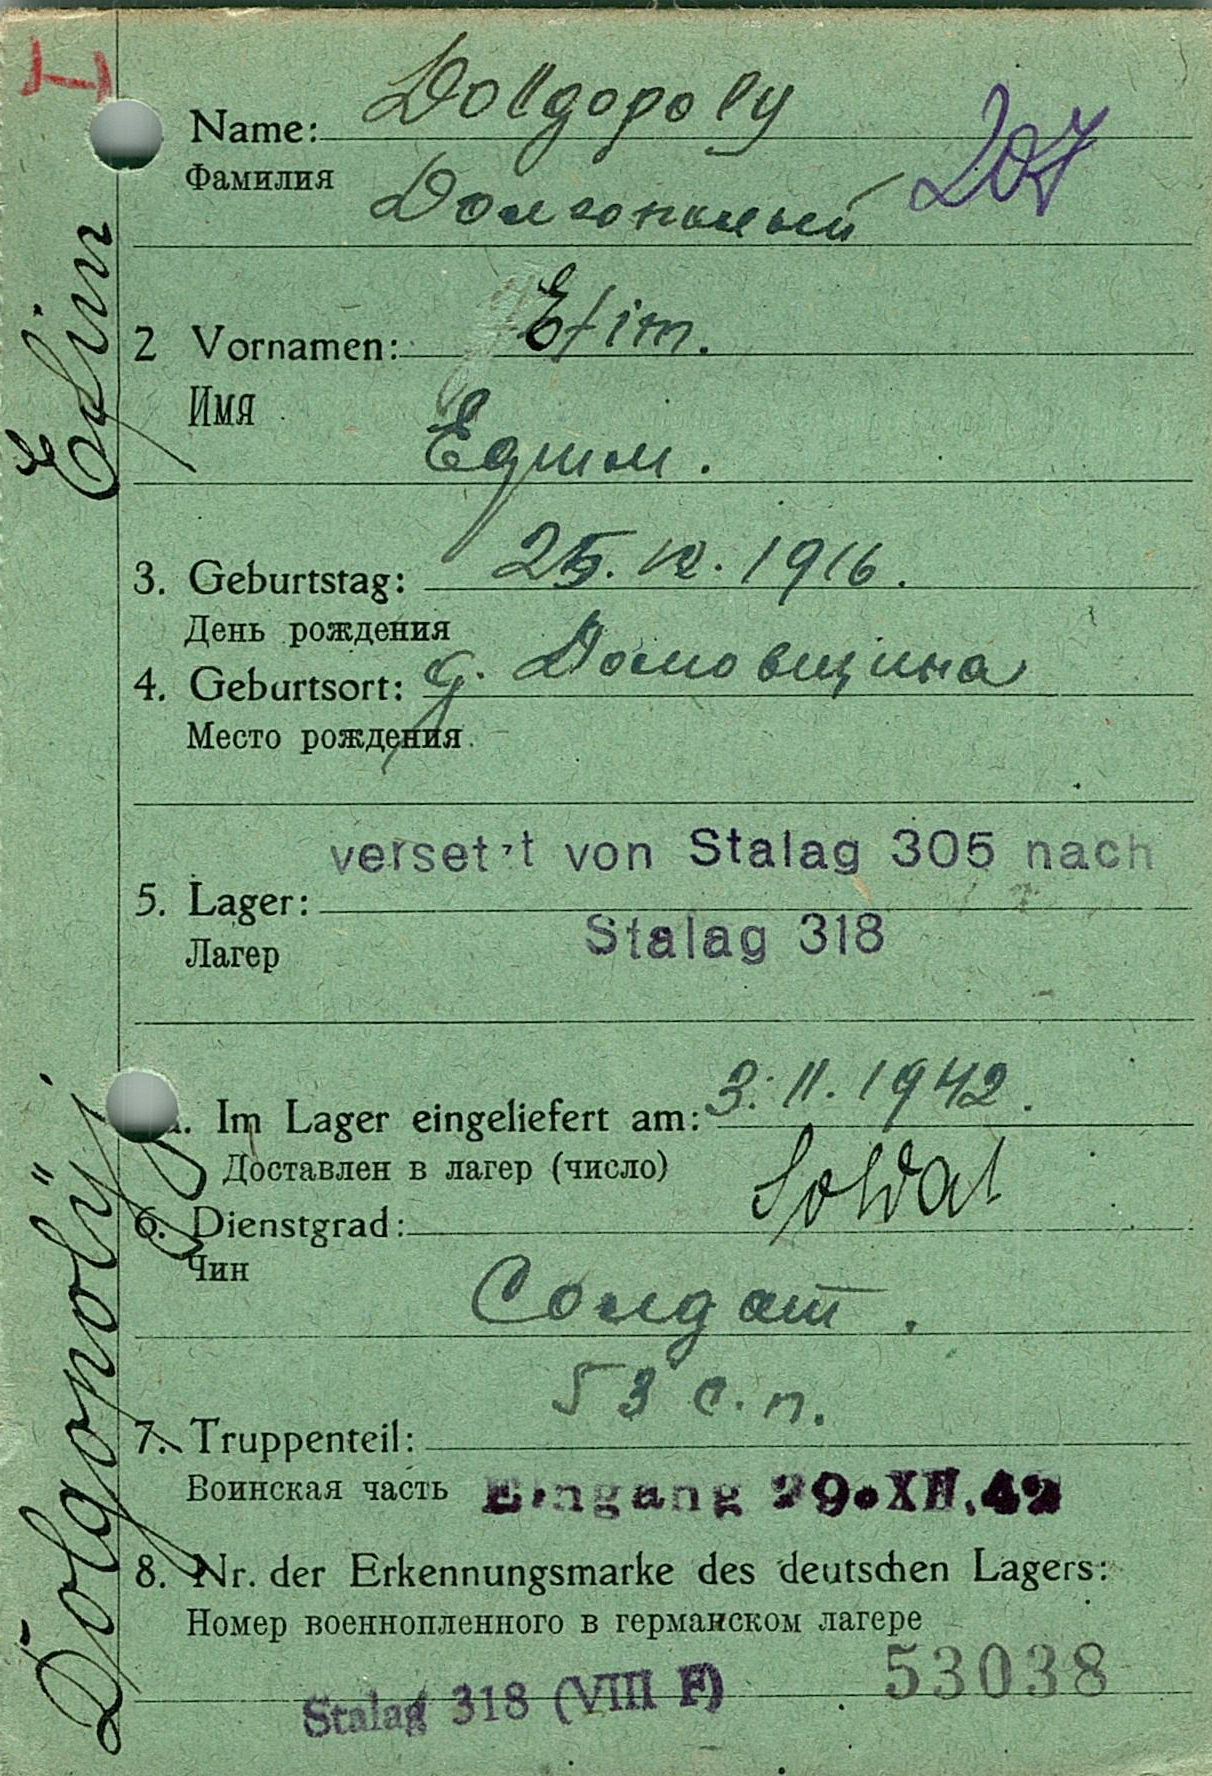 Name: Dollgopoly
Фамилия
207
Долгополый
2 Vornamen: Efim.
Имя
Ефим.
3. Geburtstag: 25. 12. 1916.
День рождения
4. Geburtsort: д. Домовщина
Место рождения
versetzt von Stalag 305 nach
5. Lager:
Stalag 318
Лагер
a. Im Lager eingeliefert am: 3. 11. 1942.
Доставлен в лагер (число)
Soldat
6. Dienstgrad:
Чин
Солдат.
53 с.п.
7. Truppenteil:
Воинская часть
Eingang 29. XII. 42
8. Nr. der Erkennungsmarke des deutschen Lagers:
Номер военнопленного в германском лагере
53038
Stalag 318 (VIII F)
Dolgopolÿj Efim